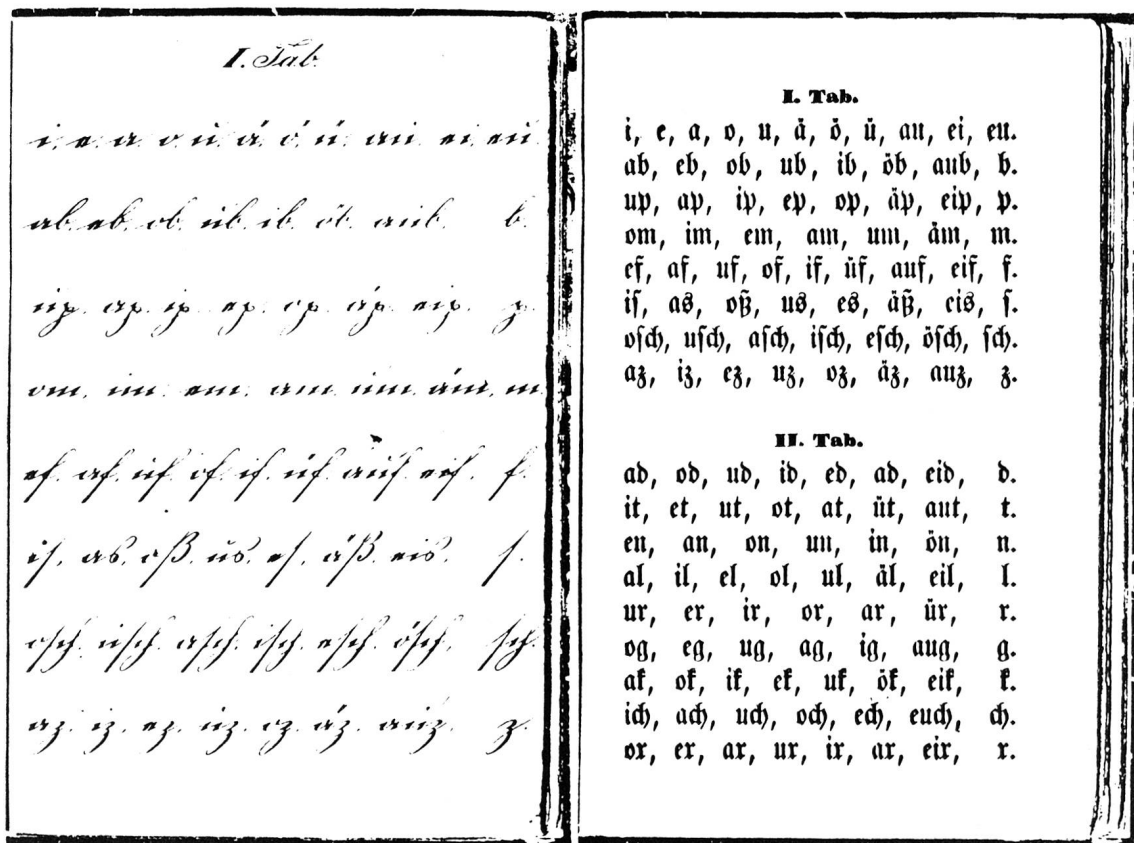 I. Tab.
i. e. a. o. u. ä. ö. ü. au. ei. eu.
ab. eb. ob. ub. ib. öb. aub. b.
up. ap. ip. ep. op. äp. eip. p.
om. im. em. am. um. äm. m.
ef. af. uf. of. if. üf. auf. eif. f.
iſ. as. oß. us. eſ. äß. eis. ſ.
oſch. uſch. aſch. iſch. eſch. öſch. ſch.
az. iz. ez. uz. oz. äz. auz. z.
I. Tab.
i, e, a, o, u, ä, ö, ü, au, ei, eu.
ab, eb, ob, ub, ib, öb, aub, b.
up, ap, ip, ep, op, äp, eip, p.
om, im, em, am, um, äm, m.
ef, af, uf, of, if, üf, auf, eif, f.
iſ, as, oß, us, es, äß, eis, ſ.
oſch, uſch, aſch, iſch, eſch, öſch, ſch.
az, iz, ez, uz, oz, äz, auz, z.
II. Tab.
ad, od, ud, id, ed, ad, eid, d.
it, et, ut, ot, at, üt, aut, t.
en, an, on, un, in, ön, n.
al, il, el, ol, ul, äl, eil, l.
ur, er, ir, or, ar, ür, r.
og, eg, ug, ag, ig, aug, g.
ak, ok, ik, ek, uk, ök, eik, k.
ich, ach, uch, och, ech, euch, ch.
ox, ex, ax, ux, ix, ax, eix, x.